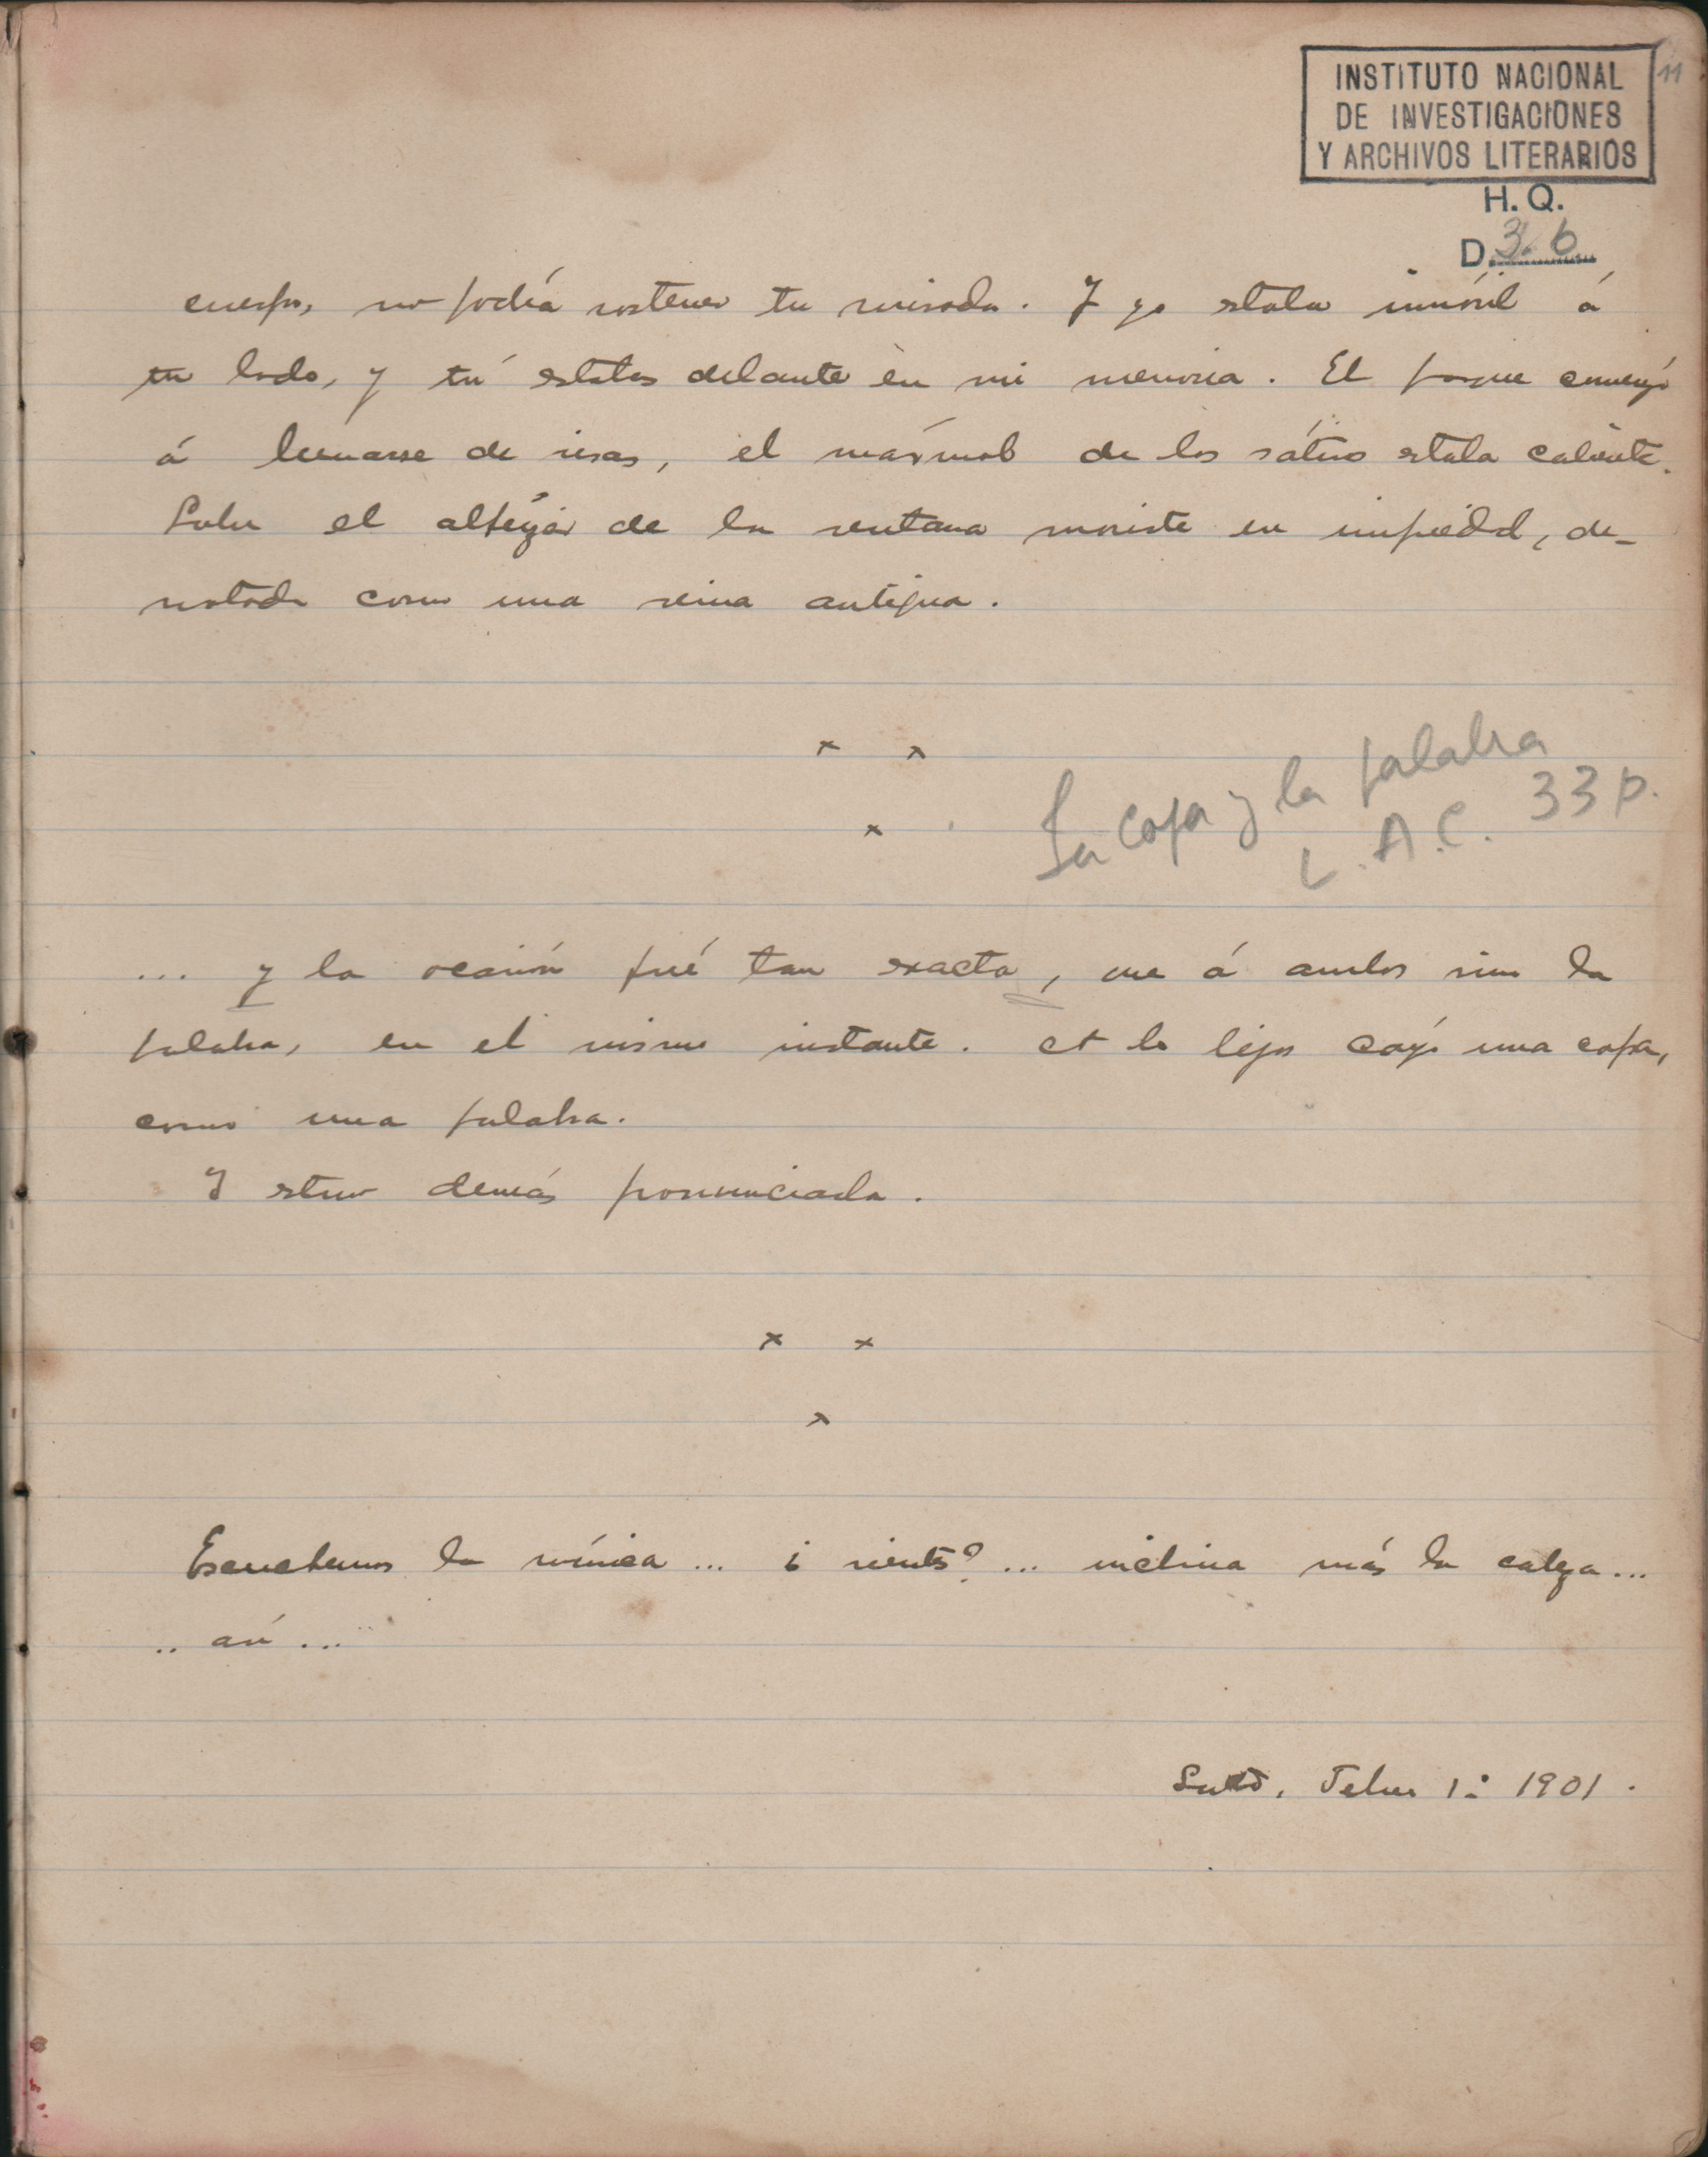 INSTITUTO NACIONAL
DE INVESTIGACIONES
Y ARCHIVOS LITERARIOS
11
H. Q.
D. 3. 6
cuerpo, no podía sostener tu mirada. Y yo estaba inmóvil á
tu lado, y tú estabas delante en mi memoria. El parque comenzó
á llenarse de risas, el mármol de los sátiros estaba caliente.
Sobre el alféizar de la ventana moriste en impiedad, de-
rrotada como una reina antigua.
x x
x
La copa y la palabra
L. A. C. 33 p.
... y la ocasión fué tan exacta, que á ambos vino la
palabra, en el mismo instante. A lo lejos cayó una copa,
como una palabra.
Y estuvo demás pronunciarla.
x x
x
Escuchemos la música ... ¿ sientes? ... inclina más la cabeza ...
.. así ...
Salto, Febrero 1º 1901.